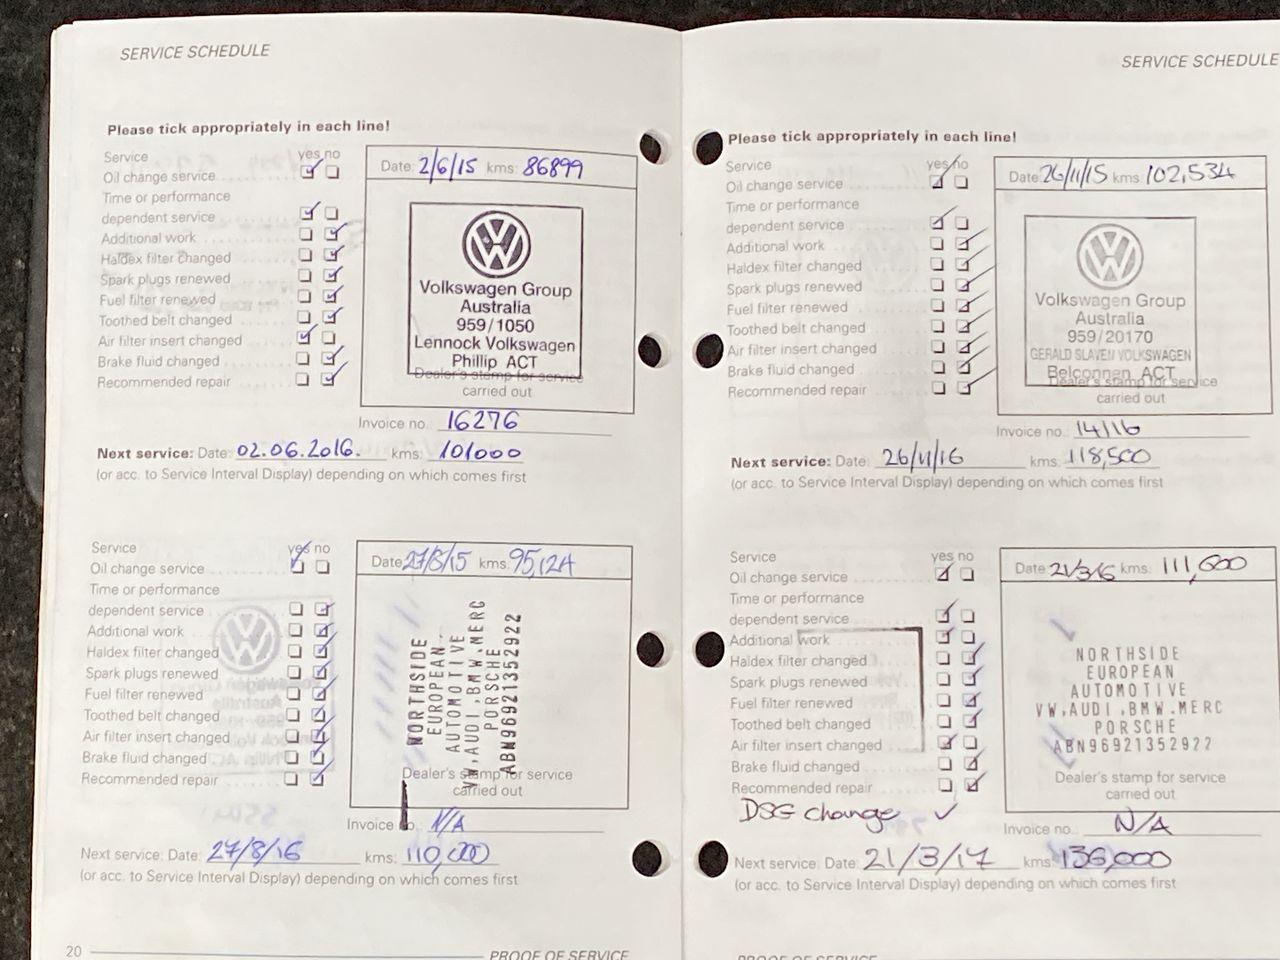 SERVICE SCHEDULE
Please tick appropriately in each line!
Service yes no
Oil change service
Time or performance
dependent service
Additional work
Haldex filter changed
Spark plugs renewed
Fuel filter renewed
Toothed belt changed
Air filter insert changed
Brake fluid changed
Recommended repair
Date: 2/6/15 kms: 86899
Volkswagen Group
Australia
959/1050
Lennock Volkswagen
Phillip ACT
Dealer's stamp for service
carried out
Invoice no. 16276
Next service: Date: 02.06.2016. kms: 101000
(or acc. to Service Interval Display) depending on which comes first
Service yes no
Oil change service
Time or performance
dependent service
Additional work
Haldex filter changed
Spark plugs renewed
Fuel filter renewed
Toothed belt changed
Air filter insert changed
Brake fluid changed
Recommended repair
Date: 27/8/15 kms: 95,124
NORTHSIDE
EUROPEAN
AUTOMOTIVE
VW,AUDI,BMW.MERC
PORSCHE
ABN96921352922
Dealer's stamp for service
carried out
Invoice no. N/A
Next service: Date: 27/8/16 kms: 110,000
(or acc. to Service Interval Display) depending on which comes first
20 PROOF OF SERVICE
SERVICE SCHEDULE
Please tick appropriately in each line!
Service yes no
Oil change service
Time or performance
dependent service
Additional work
Haldex filter changed
Spark plugs renewed
Fuel filter renewed
Toothed belt changed
Air filter insert changed
Brake fluid changed
Recommended repair
Date: 26/11/15 kms: 102,534
Volkswagen Group
Australia
959/20170
GERALD SLAVEN VOLKSWAGEN
Belconnen ACT
Dealer's stamp for service
carried out
Invoice no. 14116
Next service: Date: 26/11/16 kms: 118,500
(or acc. to Service Interval Display) depending on which comes first
Service yes no
Oil change service
Time or performance
dependent service
Additional work
Haldex filter changed
Spark plugs renewed
Fuel filter renewed
Toothed belt changed
Air filter insert changed
Brake fluid changed
Recommended repair
DSG change ✓
Date 21/3/16 kms: 111,600
NORTHSIDE
EUROPEAN
AUTOMOTIVE
VW,AUDI,BMW.MERC
PORSCHE
ABN96921352922
Dealer's stamp for service
carried out
Invoice no. N/A
Next service: Date: 21/3/17 kms: 136,000
(or acc. to Service Interval Display) depending on which comes first
PROOF OF SERVICE